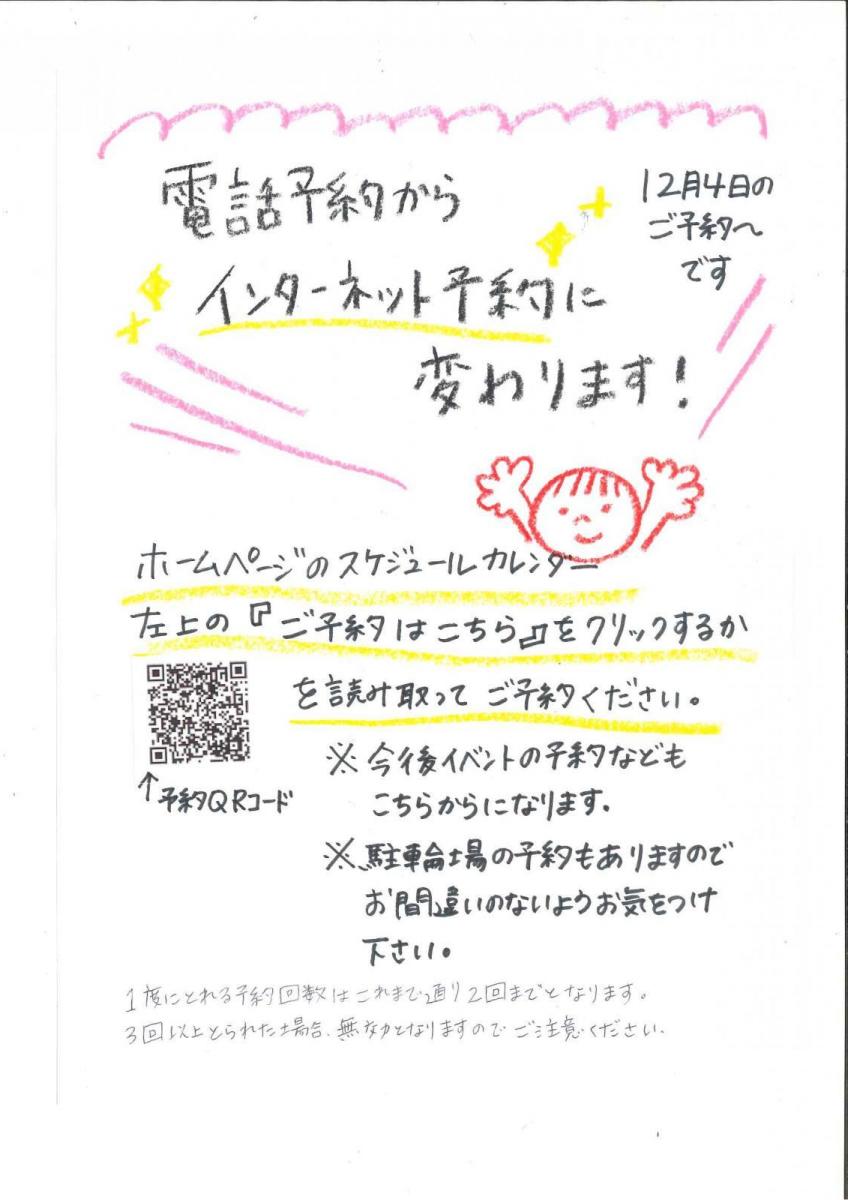 電話予約から
インターネット予約に
変わります!
12月4日の
ご予約へ
です
ホームページのスケジュールカレンダー
左上の『ご予約はこちら』をクリックするか
を読み取ってご予約ください。
↑予約QRコード
※今後イベントの予約なども
こちらからになります.
※駐輪場の予約もありますので
お間違いのないようお気をつけ
下さい。
1度にとれる予約回数はこれまで通り2回までとなります。
3回以上とられた場合、無効となりますのでご注意ください.